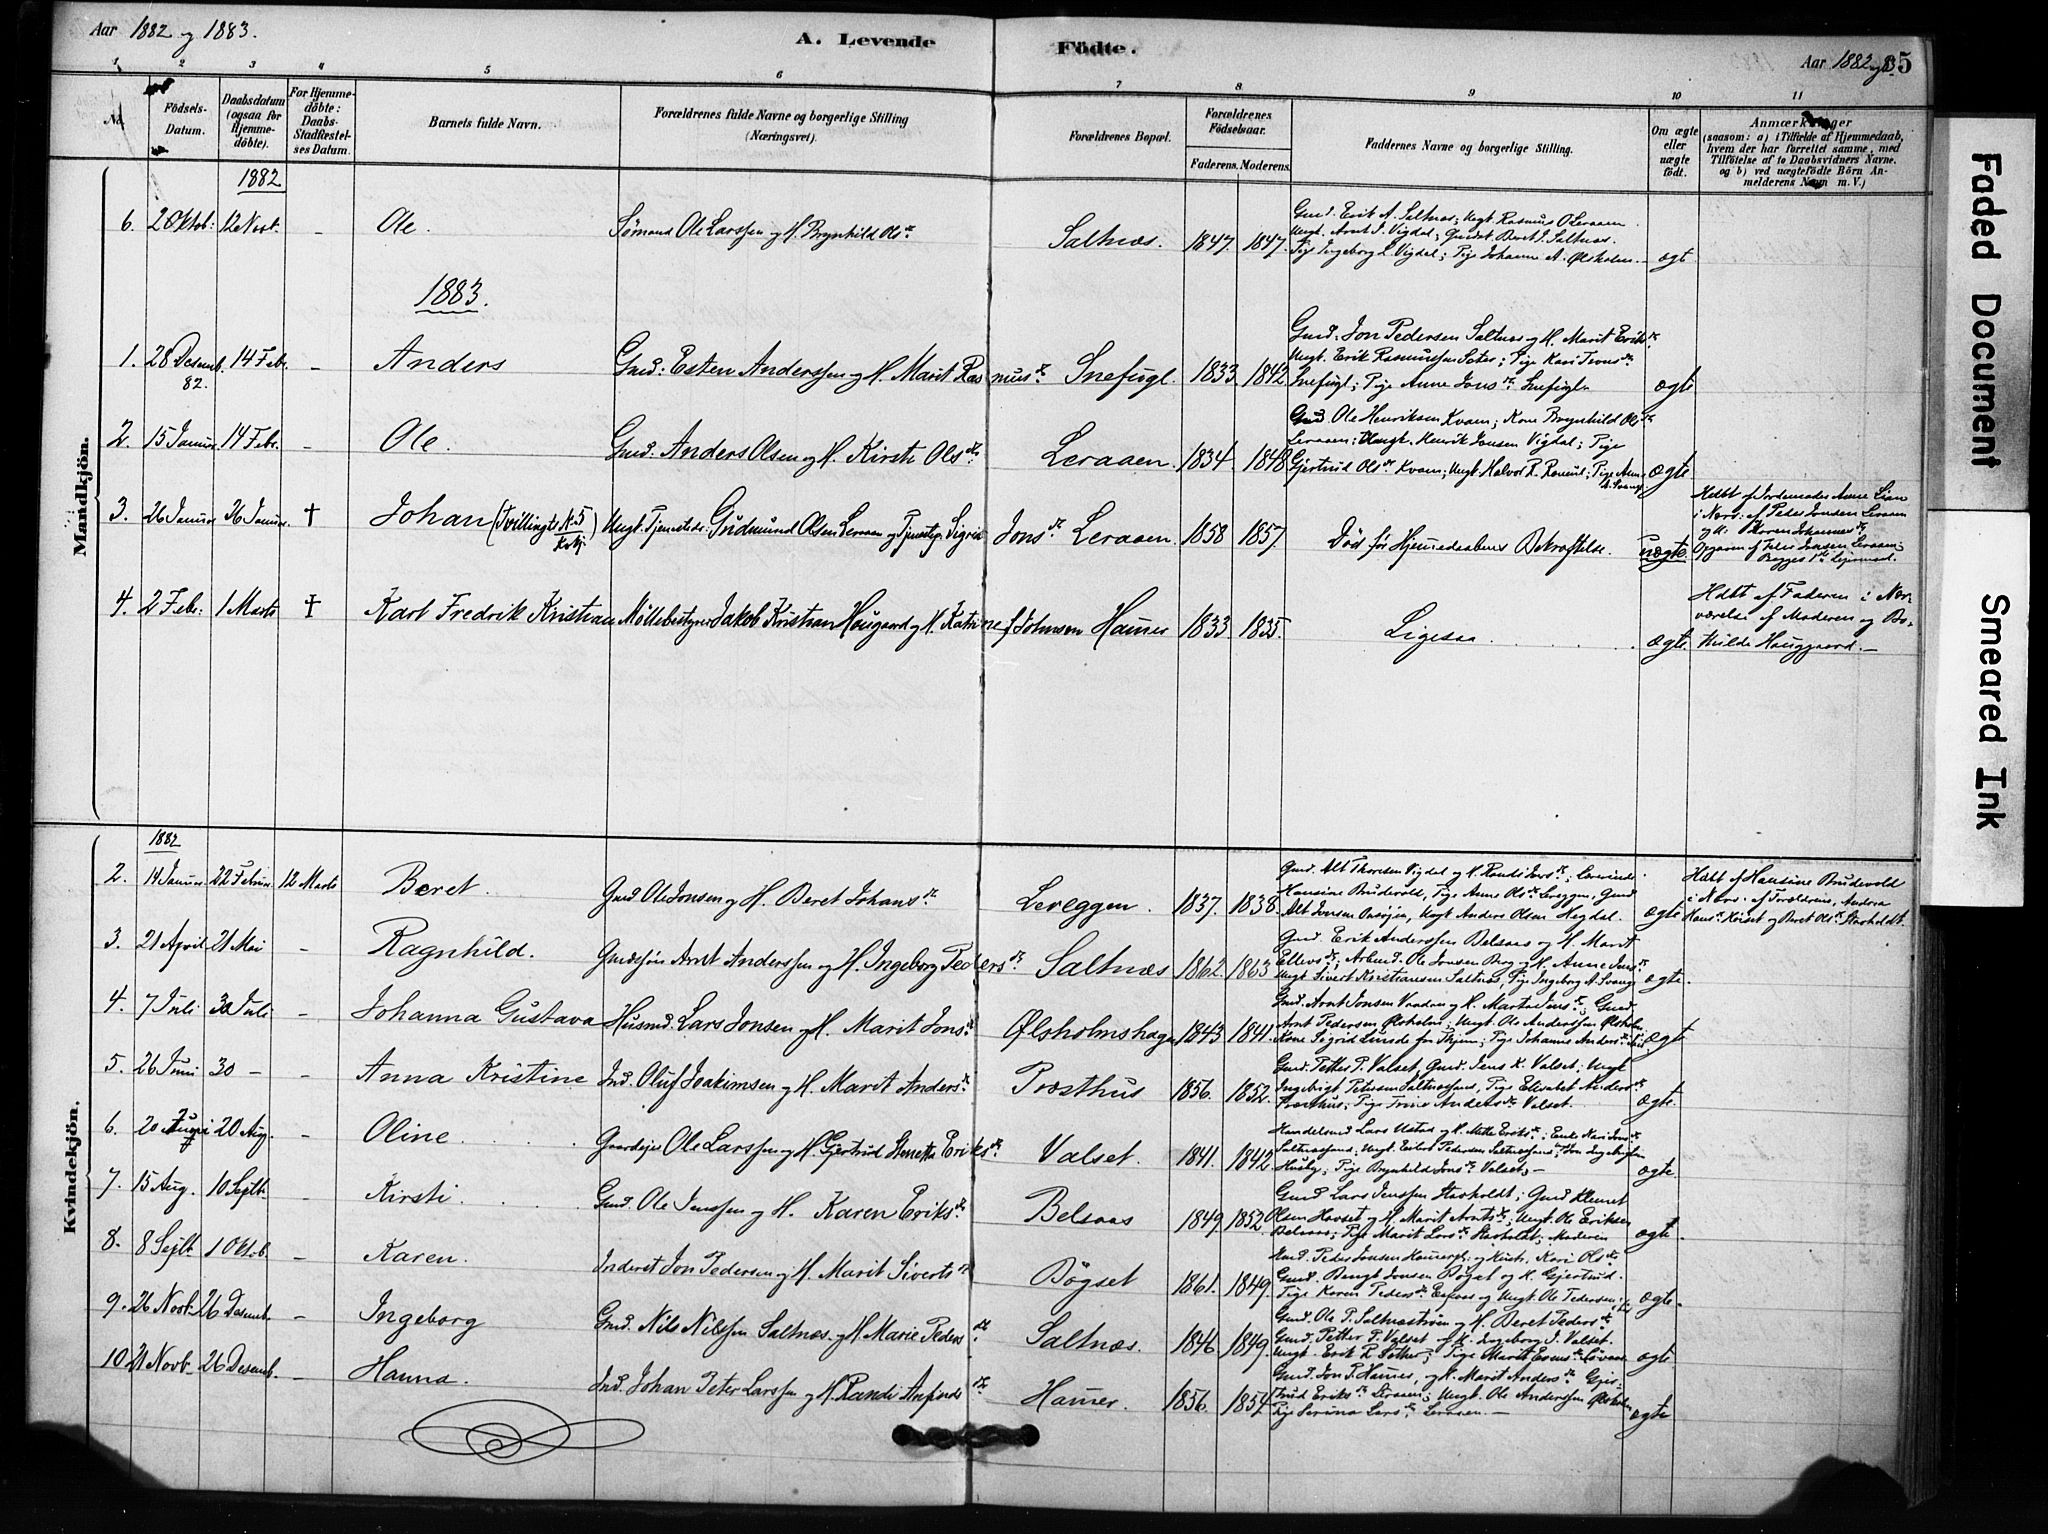 Aar 1882 og 1883.
A. Levende Födte.
Aar 1882 og 83.
5
1 2 3 4 5 6 7 8 9 10 11
No.
Födsels-Datum.
Daabsdatum (ogsaa for Hjemme-döbte).
For Hjemme-döbte: Daabs-Stadfæstel-ses Datum.
Barnets fulde Navn.
Forældrenes fulde Navne og borgerlige Stilling (Næringsvei).
Forældrenes Bopæl.
Forældrenes Födselsaar.
Faderens. Moderens.
Faddernes Navne og borgerlige Stilling.
Om ægte eller uægte födt.
Anmærkninger
(saasom: a) i Tilfælde af Hjemmedaab, hvem der har forrettet samme, med Tilföielse af to Daabsvidners Navne. og b) ved uægtefödte Börn An-melderens Navn m. V.)
Mandkjön.
1882
6. 2 Oktob: 12 Novb. - Ole. Sømand Ole Larssen og H. Brynhild Olsdr. Saltnæs. 1847. 1847.
Gmd. Erik A. Saltnæs; Ungk. Rasmus O. Leraaen.
Ungk. Arnt J. Vigdal; Beret J. Saltnæs.
Pige Ingeborg L. Vigdal; Pige Johanna A. Ølsholm. ægt
1883.
1. 28 Desemb. 82. 14 Febr. - Anders Gmd. Esten Anderssen og H. Marit Rasmusdr. Snefugl. 1833. 1842
Gmd. Jon Pedersen Saltnæs og H. Marit Eriksdr.
Ungk. Erik Rasmussen Sæter; Pige Kari
Snefugl; Pige Anne Jonsdr. Snefugl ægte
2. 15 Januar 14 Febr. - Ole. Gmd. Anders Olsen og H. Kirsti Olsdr. Leraaen. 1834. 1848
Gmd Ole Henriksen Kvam; Kone Brynhild Olsdr
Leraaen; Ungk. Henrik Jonsen Vigdal; Pige
Gjertrud Olsdr Kvam; Ungk. Halvor R. ægte
3. 26 Januar 26 Januar. † Johan (Tvillingte No 5 Kvkj.) Ungk. Tjenestedr. Gudmund Olsen Leraaen og Tjenestep. Sigrid Jonsdr Leraaen. 1858 1857.
Død før Hjemmedaabens Bekræftelse. uægte.
Hdbt af Jordemoder Anne Lian
i Nærv. af Peder Jonsen Leraaen
og H. Maren Johannesdr
4. 2 Febr: 1 Marts † Karl Fredrik Kristian Møllebestyrer Jakob Kristian Hougaard og H. Katrine f. Johnsen Hamer 1833 1835.
Ligesaa ægte.
Hdbt af Faderen i Nær-
værelse af Moderen og Bo-
thilde Hauggaard. -
Kvindekjön.
1882
2. 14 Januar 22 Februar 12 Marts Beret. Gmd Ole Jonsen og H. Beret Johansdr. Leveggen. 1837. 1838.
Gmd. Alt Thoresen Vigdal og H. Randi
Hansine Brudevold, Pige Anne Olsdr. Leveggen, Gmd
Alt Jonsen Ungk Anders Olsen ægte
Hdbt af Hansine Brudevold
i Nærv. af Forældrene, Andrea
og Beret Olsdr. Stavholdt.
3. 21 April 21 Mai Ragnhild. Gmdssøn Arnt Anderssen og H. Ingeborg Pedersdr. Saltnæs 1862. 1863
Gmd. Erik Anderssen Belsaas og H. Marit
Ellevsdr; Arbmd. Ole Jonsen Brog og H. Anne Jonsdr.
Ungk Sivert Kristiansen Saltnæs, Pige Ingeborg A. ægte.
4. 7 Juli 30 Juli - Johanna Gustava Husmd. Lars Jonsen og H. Marit Jonsdr. Ølsholmshagen 1843 1841.
Gmd. Arnt Jonsen og H. Marta Jensdr; Gmd
Arnt Pedersen Ølsholm; Ungk. Ole Anderssen Ølsholm.
Kone Sigrid Pige Johanna Andersdr. ægte
5. 26 Juni 30 - - Anna Kristine Ind. Oluf Joakimsen og H. Marit Andersdr. Præsthus 1856. 1852.
Gmd. Petter P. Valset, Gmd. Jens K. Valset; Ungk
Ingebrigt Petersen Saltnæssand, Pige Elisabet Andersdr
Præsthus; Pige Trine Andersdr Valset. ægte.
6. 20 Juni 20 Aug. - Oline Gaardejer Ole Larssen og H. Gjertrud Eriksdr. Valset. 1841. 1842
Handelsmd Lars Ustad og H. Mette Eriksdr; Enke Kari Jonsdr
Saltnæssand; Ungk. Eilert Pedersen Saltnæssand; Jon Ingebrigtsen
Husby; Pige Brynhild Jonsdr Valset; - ægte
7. 15 Aug. 10 Septb. - Kirsti Gmd. Ole Jenssen og H. Karen Eriksdr. Belsaas 1849 1852.
Gmd Lars Jenssen Stavholdt; Gmd Klemet
Olsen Havset og H. Marit Arntsdr; Ungk. Ole Eriksen
Belsaas; Pige Marit Larsdr Stavholdt; Moderen ægte.
8. 8 Septb 1 Oktob. - Karen. Inderst Jon Pedersen og H. Marit Sivertsdr Bøgset 1861. 1849.
Gmd. Peder Jonsen og Hust. Kari Olsdr
Gmd. Bengt Jonsen Bøgset og H. Gjertrud.
Pige Karen Pedersdr og Ungk Ole Pedersen, ægte.
9. 26 Novb. 26 Desemb. - Ingeborg Gmd. Nils Nilssen Saltnæs. og H. Marie Pedersdr. Saltnæs. 1846. 1849.
Gmd. Ole P. Saltnæstrøen og H. Beret Pedersdr
Gmd. Petter P. Valset og H. Ingeborg J. Valset.
Ungk. Erik R. Sæther; Pige Marit ægte
10. 21 Novb. 26 Desemb. - Hanna. Ind. Johan Peter Larssen og H. Randi Anfindsdr. Hamer. 1856. 1854
Gmd. Jon P. Hamer, og H. Marit Andersdr. Gjer-
trud Eriksdr Leraaen; Ungk. Ole Anderssen Ølsholm
Pige Serina Larsdr. Leraaen. - ægte
Faded Document
Smeared Ink